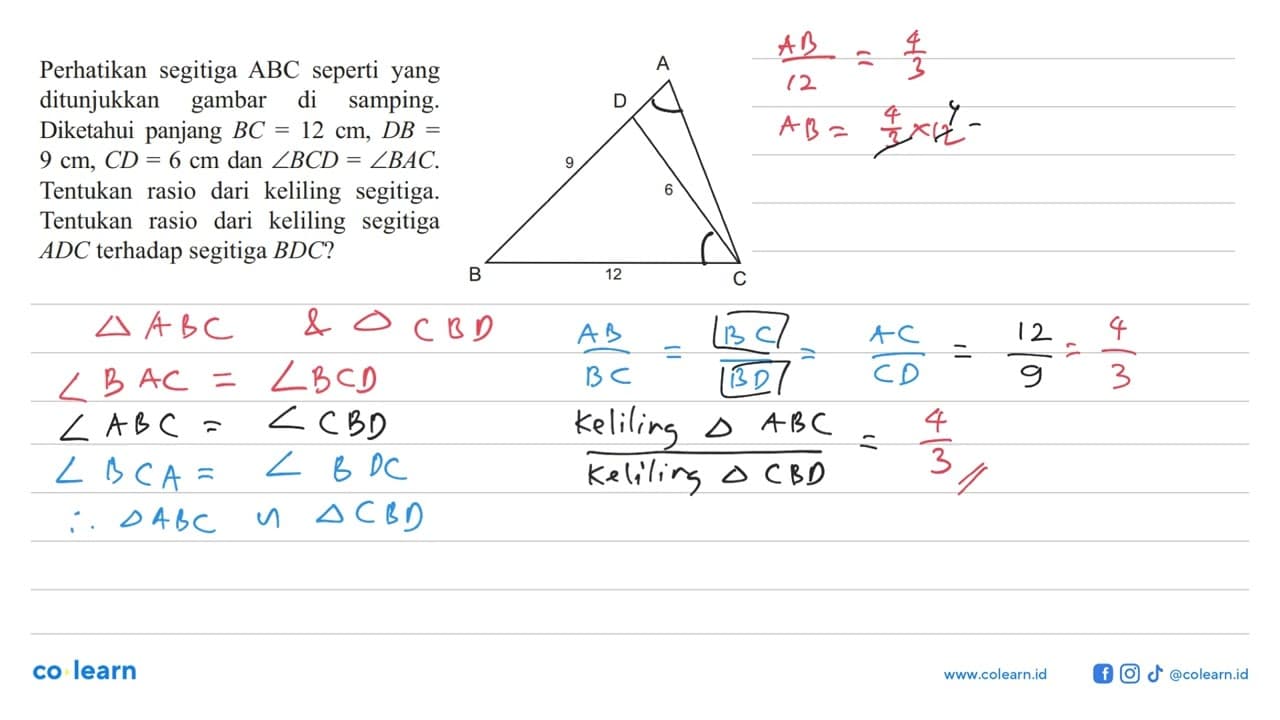 Perhatikan segitiga ABC seperti yang
ditunjukkan gambar di samping.
Diketahui panjang BC = 12 cm, DB =
9 cm, CD = 6 cm dan ∠BCD = ∠BAC.
Tentukan rasio dari keliling segitiga.
Tentukan rasio dari keliling segitiga
ADC terhadap segitiga BDC?
A
D
9
6
B
12
C
AB/12 = 4/3
AB = 4/3 × 12 4 =
△ ABC & △ CBD
∠ BAC = ∠BCD
∠ ABC = ∠ CBD
∠ BCA = ∠ BDC
∴ △ABC ∽ △CBD
AB/BC = BC/BD = AC/CD = 12/9 = 4/3
Keliling △ ABC / Keliling △ CBD = 4/3 //
co learn
www.colearn.id
@colearn.id